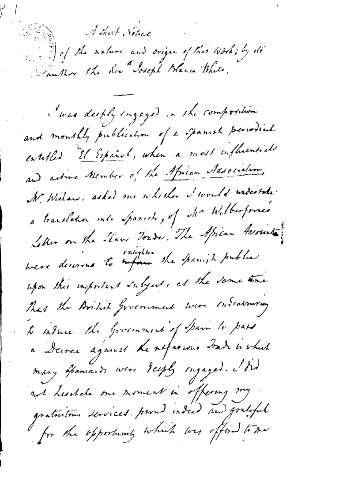 A Short Notice
of the nature and origin of this work; by its
author the Revd Joseph Blanco White.
I was deeply engaged in the composition
and monthly publication of a Spanish periodical
entitled El Español, when a most influential
and active Member of the African Association,
Mr. asked me whether I would undertake
a translation into Spanish, of Mr Wilberforce's
Letter on the Slave Trade. The African Associates
were desirous to enlighten the Spanish public
upon this important subject, at the same time
that the British Government were endeavouring
to induce the Government of Spain to pass
a Decree against the nefarious Trade in which
many Spaniards were deeply engaged. I did
not hesitate one moment in offering my
gratuitous services, proud indeed and grateful
for the opportunity which was offered to me